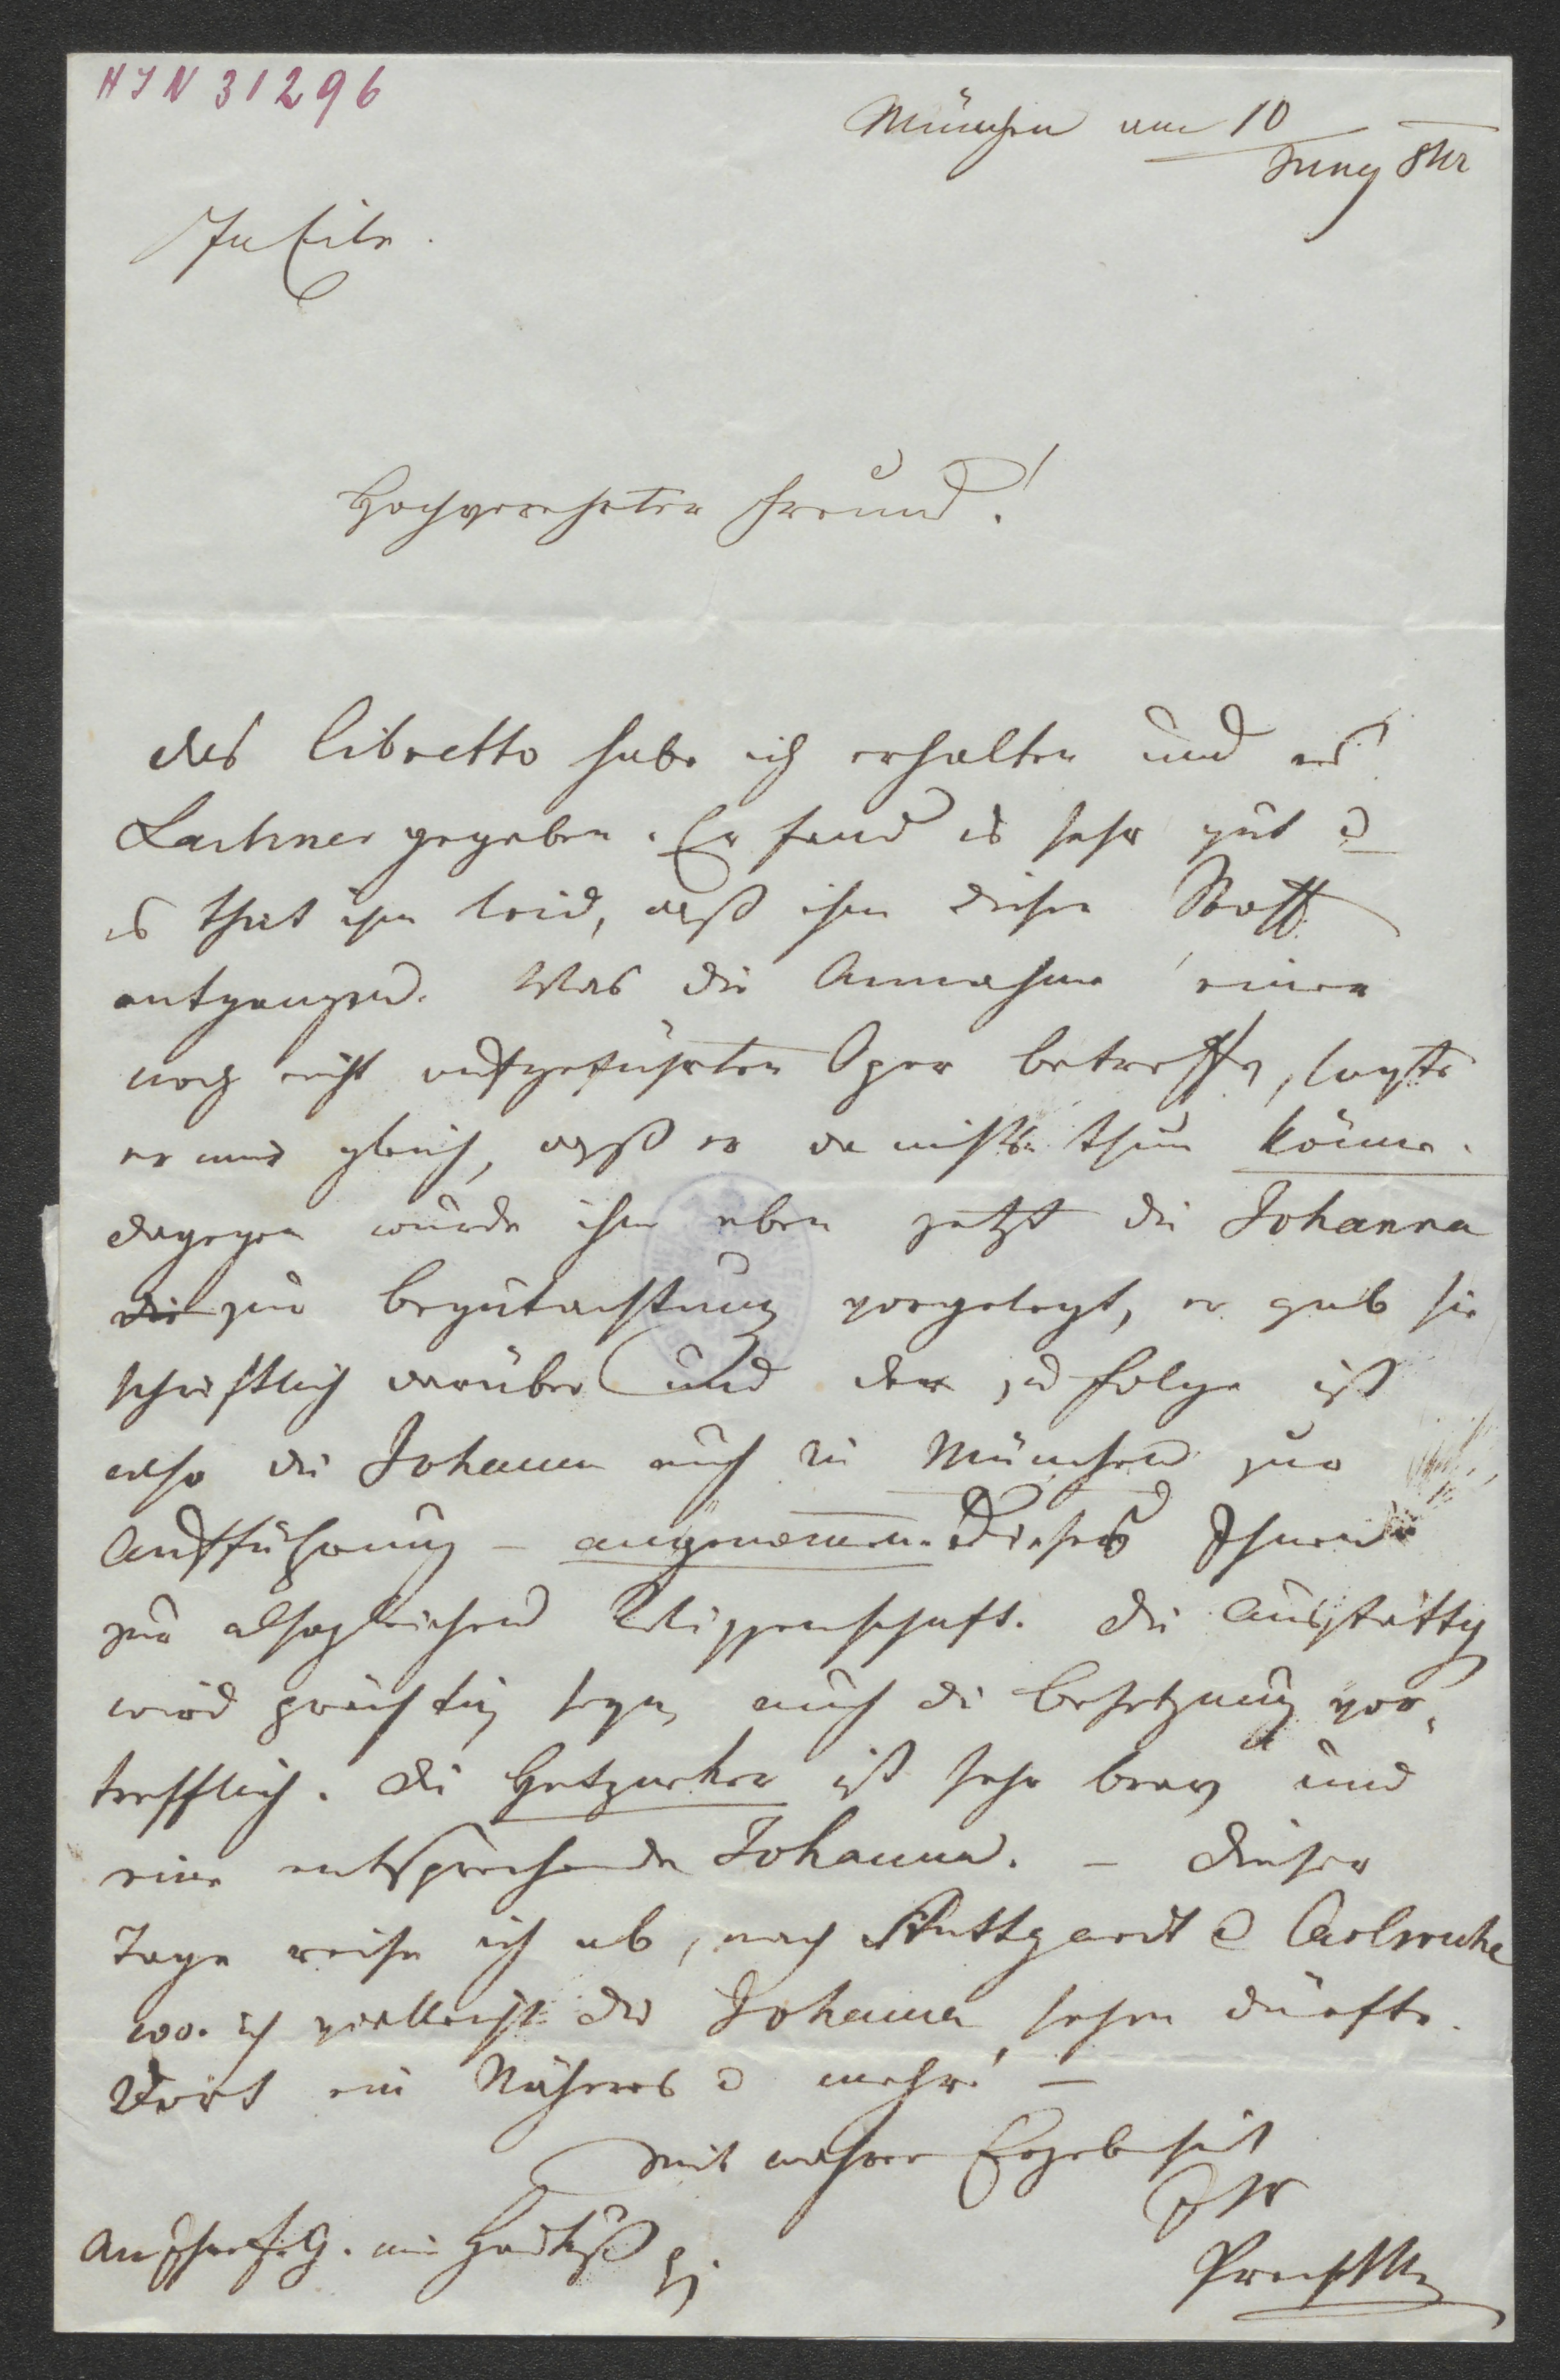 HIN 31296
München am 10
Juny 8Uhr
In Eile.
Hochverehrter Freund!
das libretto habe ich erhalten und es
Lachner gegeben. Er fand es sehr gut &
es that ihm leid, daß ihm dieser Stoff
entgangen. Was die Annahme einer
noch nicht aufgeführten Oper betreffe, sagte
er mir gleich, daß er da nichts thun könne.
dagegen wurde ihm eben jetzt die Johanna
die zur Begutachtung vorgelegt, er gab sie
schriftlich darüber und der Folge ist
also die Johanna auch in München zur
Aufführung – angenommen. Dieses Ihnen
zur alsogleichen Wissenschaft. die Ausstattg
wird prächtig seyn, auch die Besetzung vor-
trefflich. die Hetznecker ist sehr brav und
eine entsprechende Johanna. – dieser
Tage reise ich ab, nach Stuttgardt & Carlsruhe
wo ich vielleicht die Johanna sehen dürfte.
Dort ein Näheres & mehr! –
Mit wahrer Ergebenheit
Ihr
Prechtler
An Ihre Fr. G. ein Handkuß